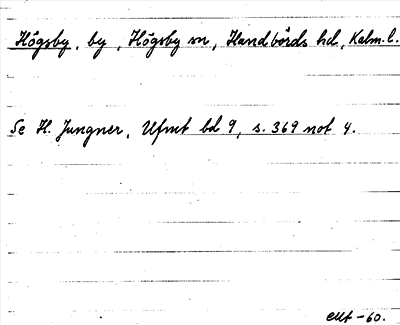 Högsby, by, Högsby sn, Handbörds hd, Kalm. l.
Se H. Jungner, Ufmt bd 9, s. 369 not 4.
-60.